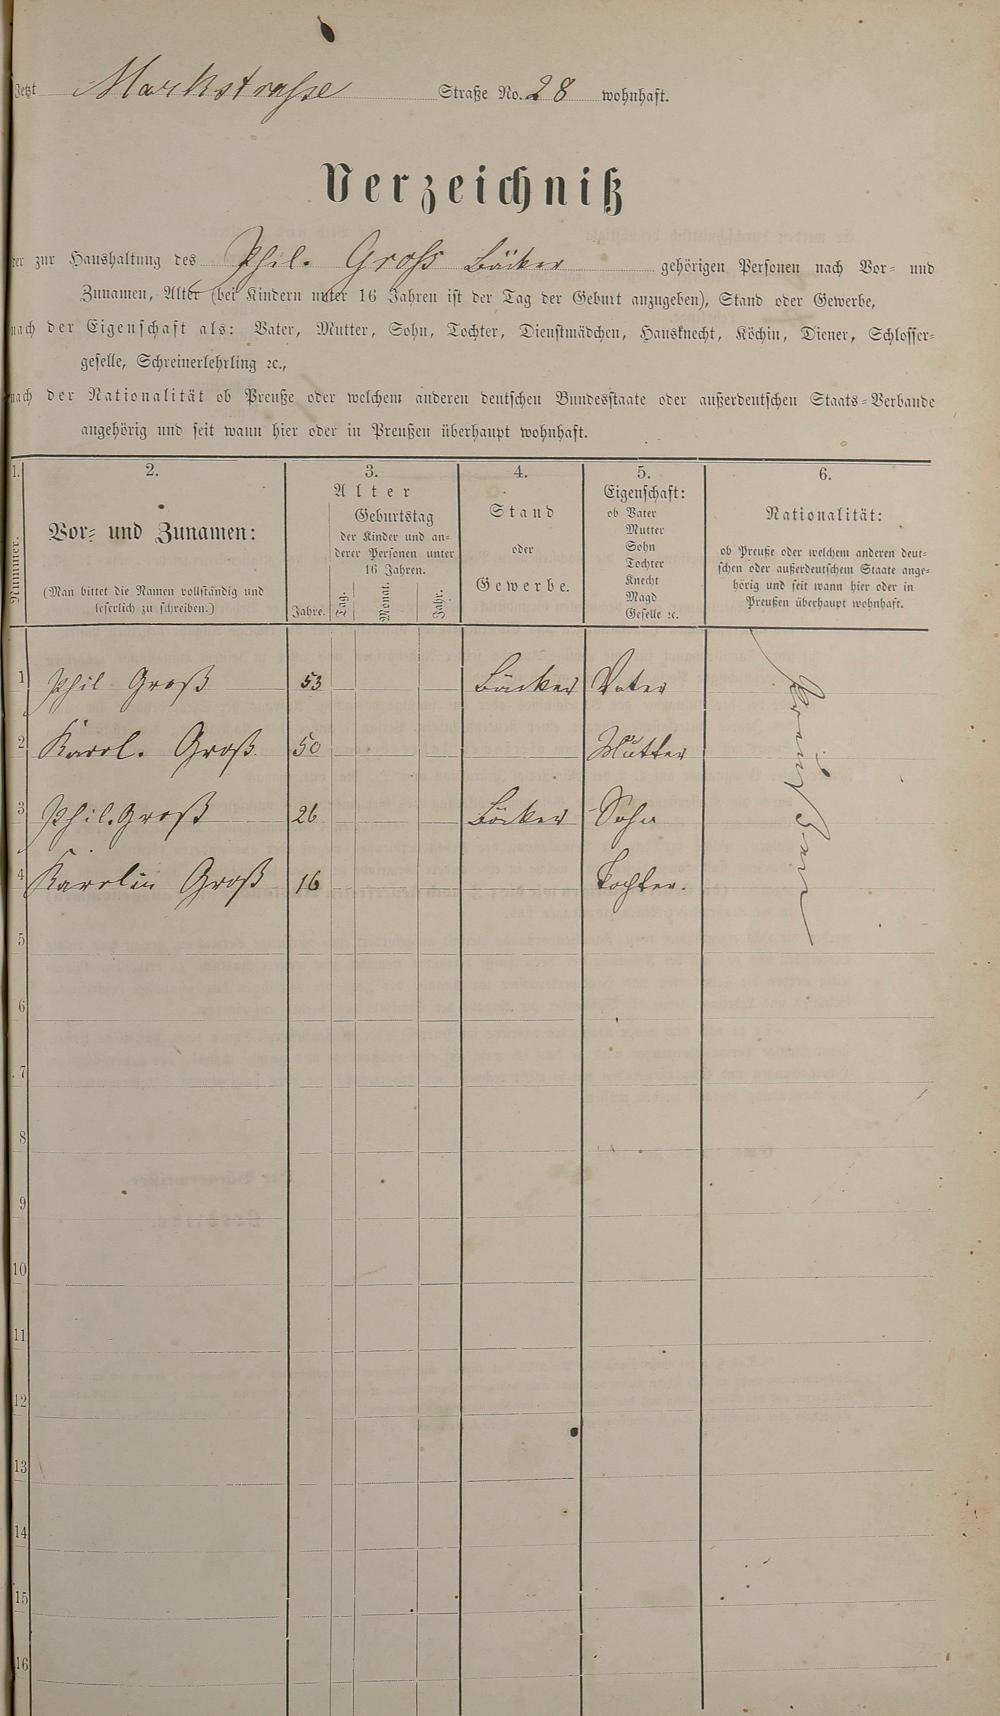 Jetzt Markstraße Straße No. 28 wohnhaft.
Verzeichniß
der zur Haushaltung des Phil. Groß Bäcker gehörigen Personen nach Vor- und
Zunamen, Alter (bei Kindern unter 16 Jahren ist der Tag der Geburt anzugeben), Stand oder Gewerbe,
nach der Eigenschaft als: Vater, Mutter, Sohn, Tochter, Dienstmädchen, Hausknecht, Köchin, Diener, Schlosser-
geselle, Schreinerlehrling ꝛc.,
nach der Nationalität ob Preuße oder welchem anderen deutschen Bundesstaate oder außerdeutschen Staats-Verbande
angehörig und seit wann hier oder in Preußen überhaupt wohnhaft.
1. 2. 3. 4. 5. 6.
Nummer.
Vor- und Zunamen:
(Man bittet die Namen vollständig und
leserlich zu schreiben.)
Alter
Jahre.
Geburtstag
der Kinder und an-
derer Personen unter
16 Jahren.
Tag. Monat. Jahr.
Stand
oder
Gewerbe.
Eigenschaft:
ob Vater
Mutter
Sohn
Tochter
Knecht
Magd
Geselle ꝛc.
Nationalität:
ob Preuße oder welchem anderen deut-
schen oder außerdeutschem Staate ange-
hörig und seit wann hier oder in
Preußen überhaupt wohnhaft.
1 Phil Groß 53 Bäcker Vater
2 Karol. Groß 50 Mutter
3 Phil. Groß 26 Bäcker Sohn
4 Karolin Groß 16 Tochter.
Preußen
5
6
7
8
9
10
11
12
13
14
15
16